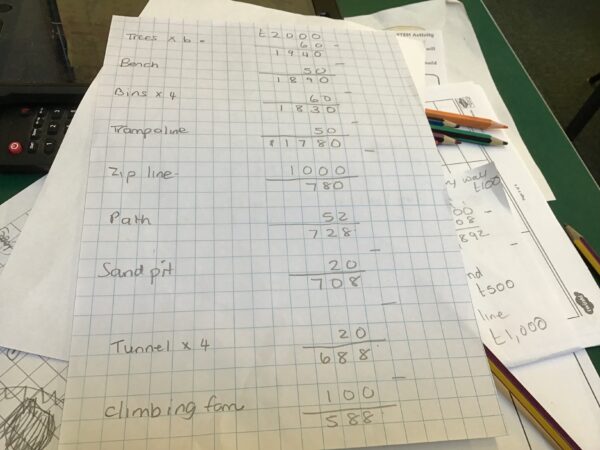 Trees x 6 - £2000
60 -
1940
Bench 50 -
1890
Bins x 4 60 -
1830
Trampoline 50 -
11780
Zip line 1000 -
780
Path 52
728
Sand pit 20 -
708
Tunnel x 4 20 -
688
climbing fam 100 -
588
STEM Activity
will
wall
£100
00 -
08
,892
£500
line
£1,000